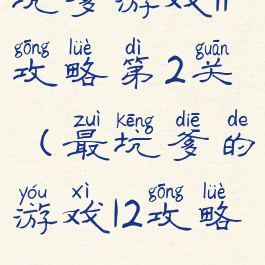 坑爹游戏11
gōng lüè dì guān
攻略第2关
zuì kēng diē de
（最坑爹的
yóu xì gōng lüè
游戏12攻略